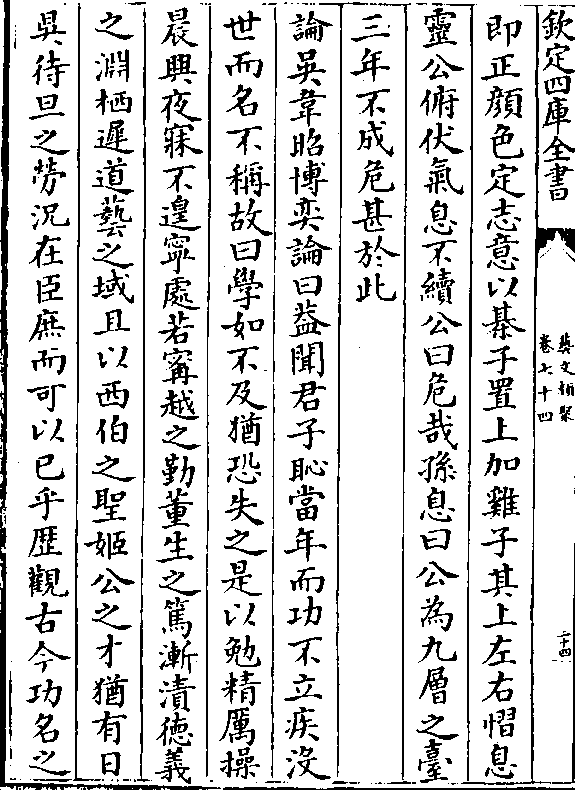 欽定四庫全書
藝文類聚
卷七十四
二十四
即正顔色定志意以棊子置上加雞子其上左右慴息
靈公俯伏氣息不續公曰危哉孫息曰公為九層之臺
三年不成危甚於此
論吳韋昭博奕論曰蓋聞君子恥當年而功不立疾沒
世而名不稱故曰學如不及猶恐失之是以勉精厲操
晨興夜寐不遑寧處若甯越之勤董生之篤漸漬徳義
之淵栖遲道藝之域且以西伯之聖姬公之才猶有日
昃待旦之勞況在臣庶而可以已乎歴觀古今功名之